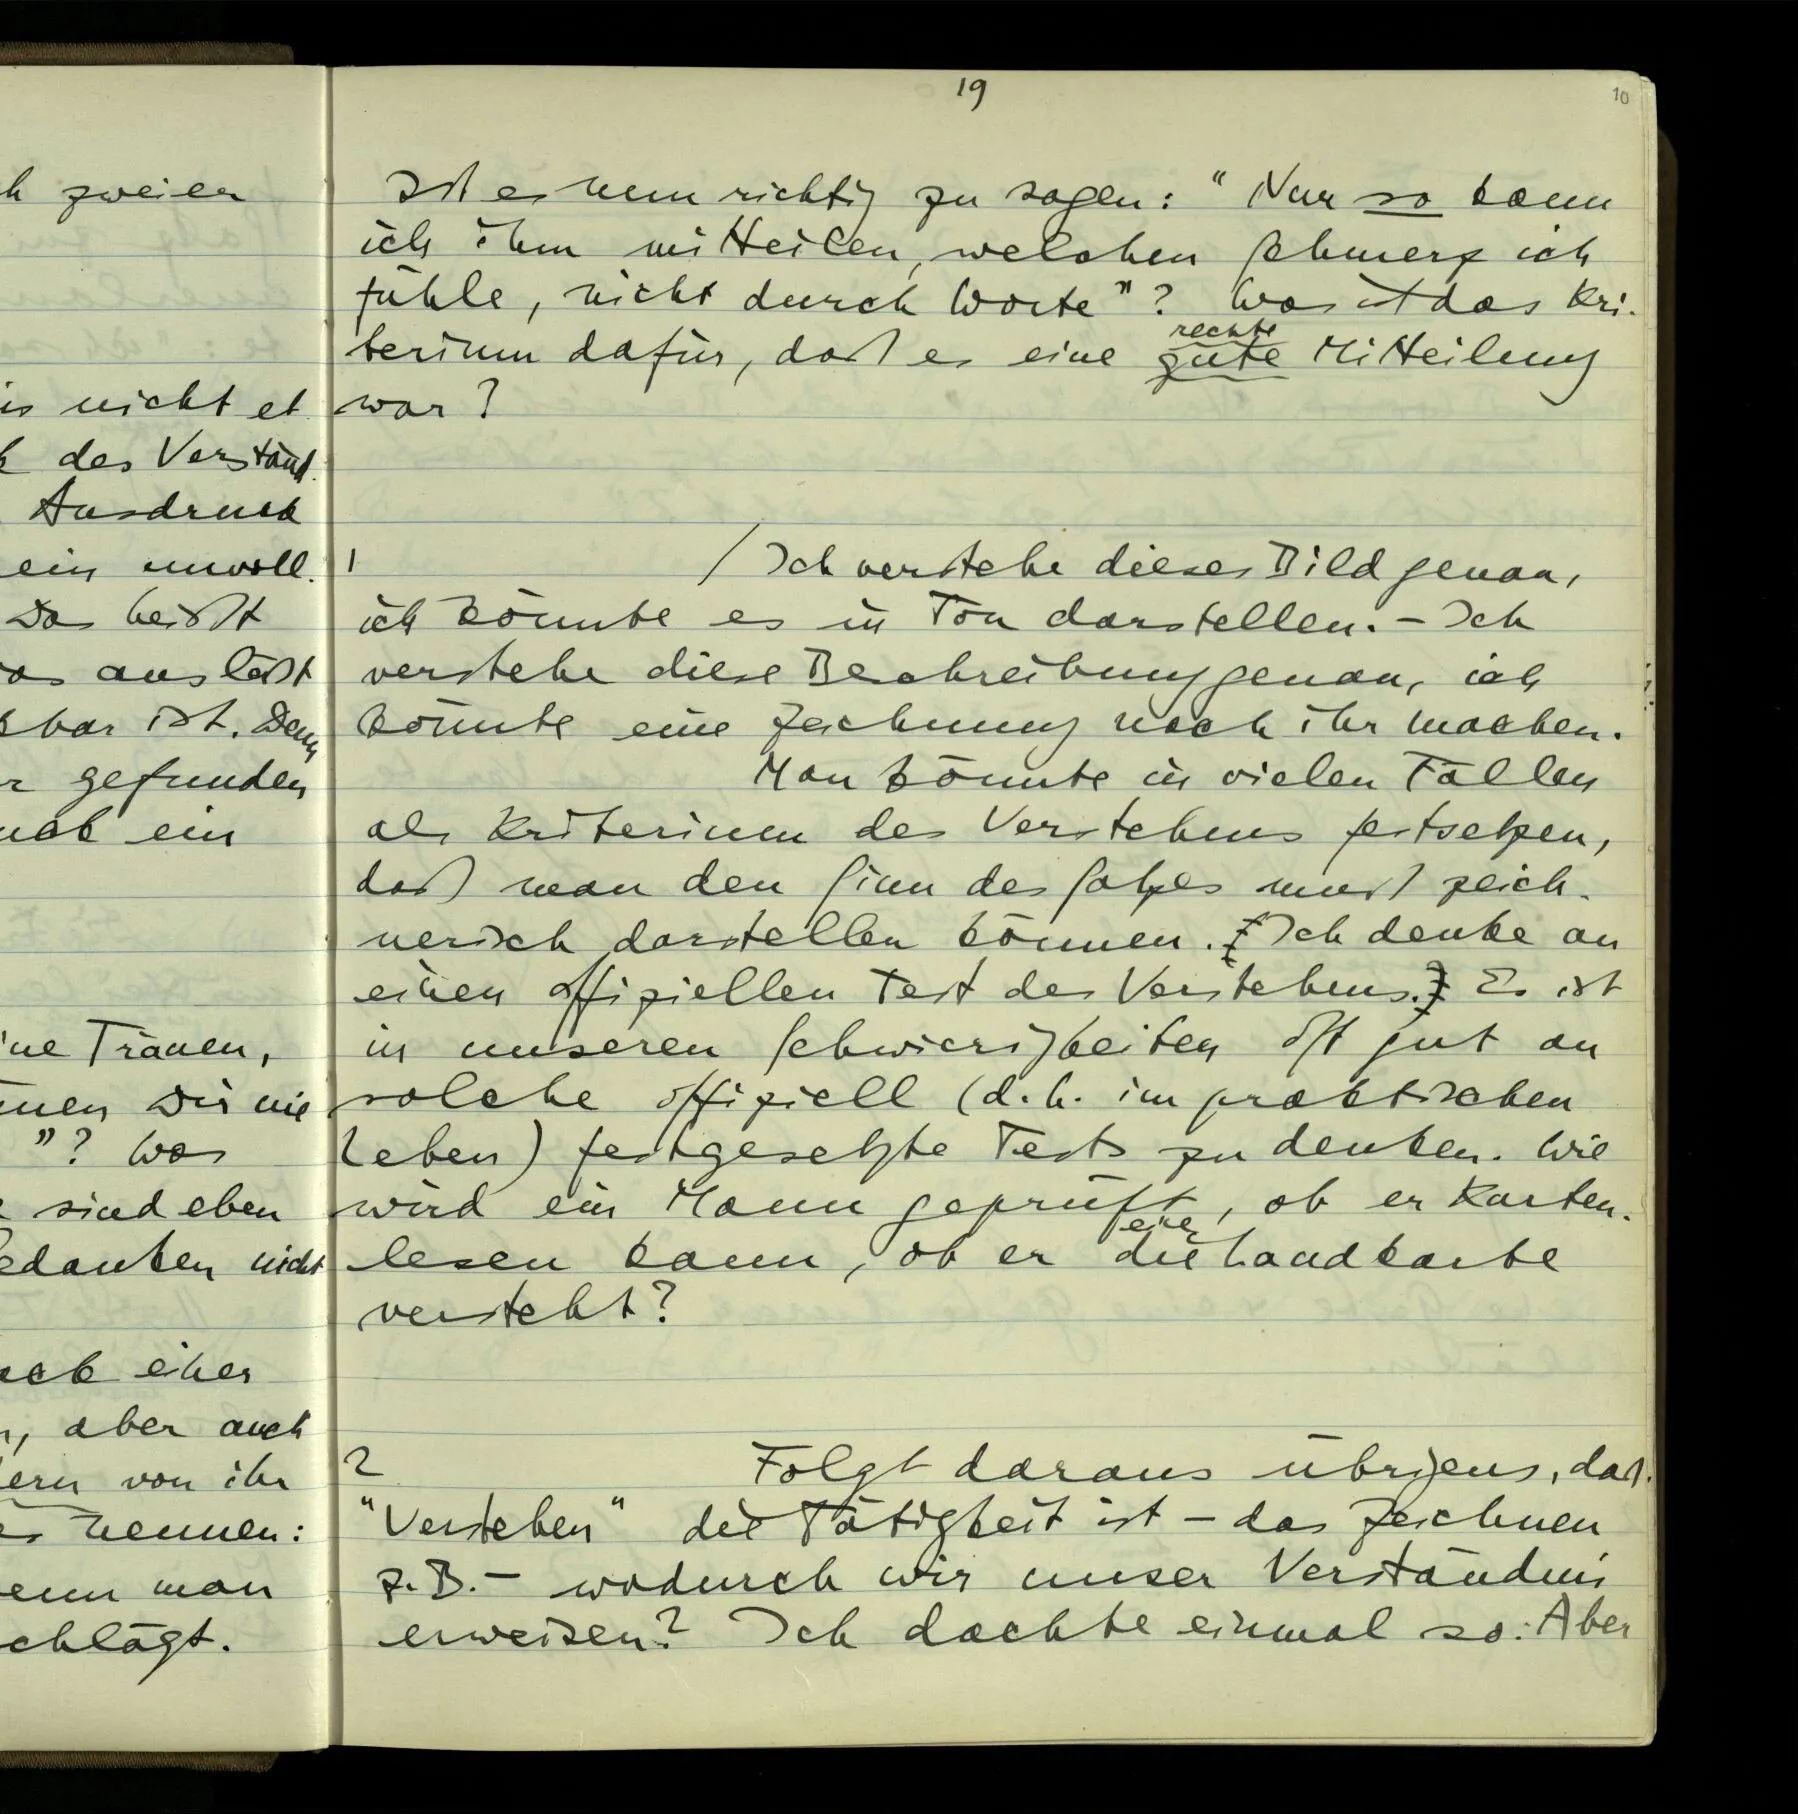 19
10
Ist es nun richtig zu sagen: "Nur so kann
ich ihm mitteilen, welchen Schmerz ich
fühle, nicht durch Worte"? Was ist das Kri-
rechte
terium dafür, daß es eine gute Mitteilung
war?
1 / Ich verstehe dieses Bild genau,
ich könnte es in Ton darstellen. – Ich
verstehe diese Beschreibung genau, ich
könnte eine Zeichnung nach ihr machen.
Man könnte in vielen Fällen
als Kriterium des Verstehens festsetzen,
daß man den Sinn des Satzes muß zeich-
nerisch darstellen können. Ich denke an
einen offiziellen Test des Verstehens. Es ist
in unseren Schwierigkeiten oft gut an
solche offiziell (d.h. im praktischen
Leben) festgesetzte Tests zu denken. Wie
wird ein Mann geprüft, ob er Karten-
eine
lesen kann, ob er die Landkarte
versteht?
2 Folgt daraus übrigens, daß
"Verstehen" die Tätigkeit ist – das Zeichnen
z.B. – wodurch wir unser Verständnis
erweisen? Ich dachte einmal so. Aber
h zweier
is nicht et
des Verständ-
Ausdruck
ein unvoll-
Das heißt
as ausläßt
bar ist. Denn
r gefunden
ein
ine Tränen,
nen Dir nie
"? Was
sind eben
edanken nicht
einer
, aber auch
ern von ihr
es nennen:
enn man
chlägt.